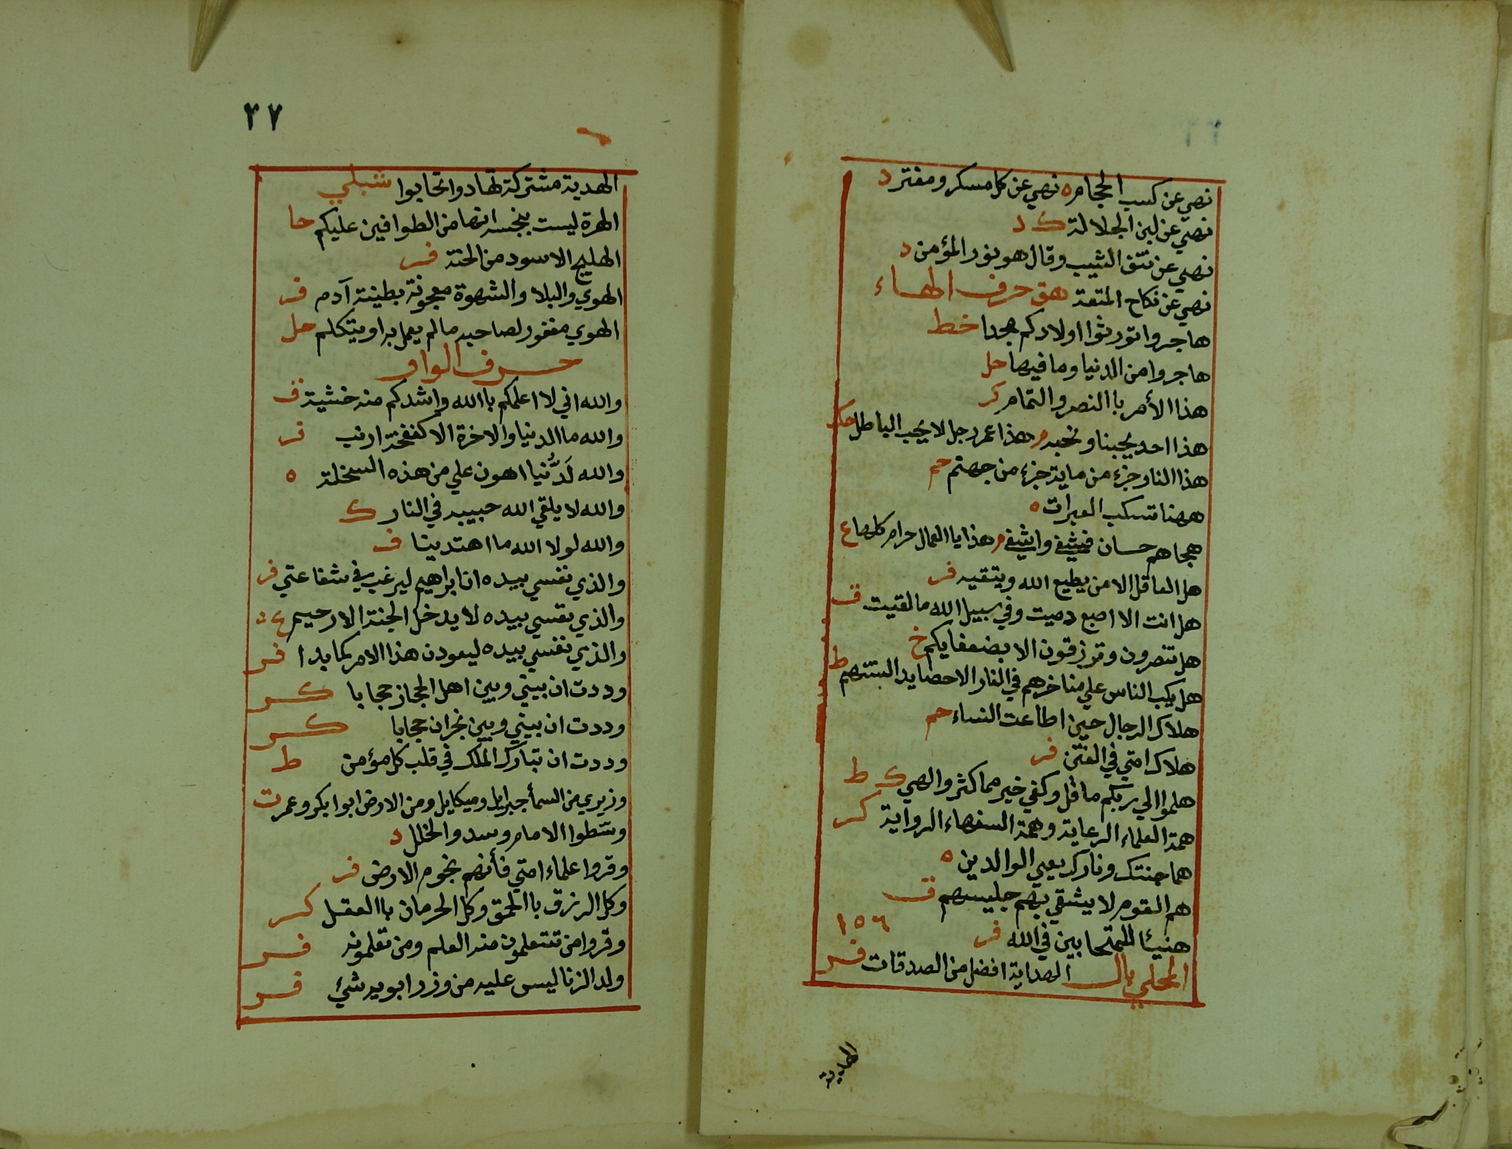 نهى عن كسب الحجام ه نهى عن كل مسكر ومفتر د
نهى عن لبن الجلالة ك د
نهى عن نتف الشيب وقال هو نور المؤمن د
نهى عن نكاح المتعة هق حرف الهاء
هاجروا تورثوا اولادكم مجدا خط
هاجروا من الدنيا وما فيها حل
هذا الأمر باالنصر والتمام كر
هذا احد يحبنا ونحبه م هذا عمر رجل لا يحب الباطل حك
هذا النار جزء من ماية جزء من جهنم حم
ههنا تسكب العبرات ه
هجاهم حسان فشفى واشفى م هذايا العمال حرام كلها ع
هل العاقل الا من يطيع الله ويتقيه فر
هل انت الا اصبع دميت وفي سبيل الله ما لقيت ق
هل تنصرون وترزقون الا بضعفايكم خ
هل يكب الناس على مناخرهم في النار الا حصايد السنتهم ط
هلاك الرجال حين اطاعت النساء حم
هلاك امتي في الفتن فر
هلموا الى ربكم ما قل وكفى خير مما كثر والهى ك ط
همة العلماء الرعاية وهمة السفهاء الرواية كر
هما جنتك ونارك يعني الوالدين ه
هم القوم لا يشقي بهم جليسهم ق
هنيئا للمتحابين في الله فر ١٥٦
المحلي بال الهداية افضل من الصدقات فر
الهدية
٤٧
الهدية مشتركة تهادوا تحابوا شبلي
الهرة ليست بنجسة انها من الطوافين عليكم حا
الهليج الاسود من الجنة فر
الهوي والبلا والشهوة معجونة بطينة آدم فر
الهوي مغفور لصاحبه ما لم يعمل به او يتكلم حل
حرف الواو
والله اني لا اعلمكم باالله واشدكم منه خشية ق
والله ما الدنيا والاخرة الا كنفخة ارنب فر
والله لَدُّنيا اهون علي من هذه السخلة ه
والله لا يلقي الله حبيبه في النار ك
والله لولا الله ما اهتدينا ق
والذي نفسي بيده ان ابراهيم ليرغب في شفاعتي فر
والذي نفسي بيده لا يدخل الجنة الا رحيم ع د
والذي نفسي بيده ليعودن هذا الامر كما بدا فر
وددت ان بيني وبين اهل الحجاز حجابا كر
وددت ان بيني وبين نجران حجابا كر
وددت ان تبارك الملك في قلب كل مؤمن ط
وزيري من السمأ جبرايل وميكايل ومن الارض ابوا بكر وعمر ت
وسطوا الامام وسدوا الخلل د
وقروا علماء امتي فأنهم نجوم الارض فر
وكل الرزق باالحمق وكل الحرمان باالعقل كر
وقروا من تتعلمون منه العلم ومن تعلمونه فر
ولد الزنا ليس عليه من وزر ابويه شئ فر